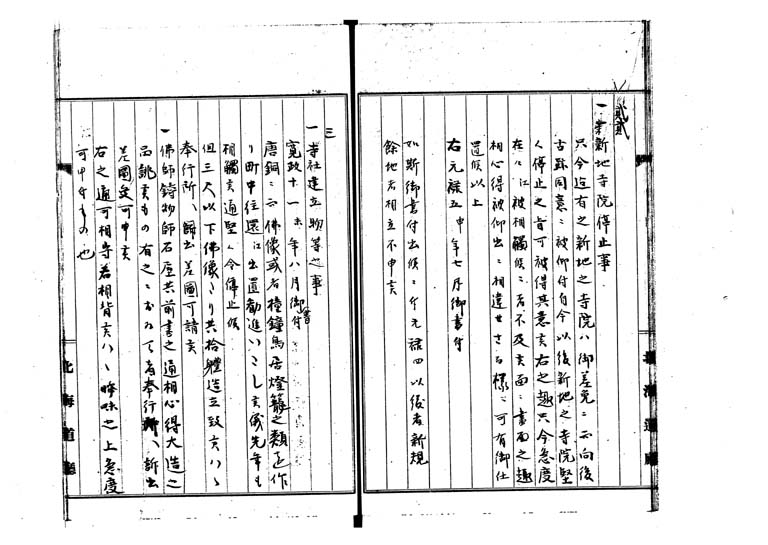 一 新地寺院停止事
只今迄有之新地之寺院ハ御差免ニ而向後
古跡同意ニ被仰付自今以後新地之寺院堅
ク停止之旨可被得其意亥右之趣只今急度
在々江被相觸候ニ者不及亥面ニ書面之趣
相心得被仰出ニ相違無之様ニ可有御仕
置候以上
右元禄五申年七月御書付
如斯御書付出候ニ付元禄四以後者新規
餘地者相立不申亥
三
一 寺社建立物等之事
寛政十一未年八月御書付
唐銅ニ而佛像或者撞鐘鳥居燈籠之類を作
り町中往還江出置勧進いたし亥儀先年も
相觸亥通堅ク令停止候
但三尺以下佛像たり共拾軆造立致亥ハヽ
奉行所ヘ歸出差圖可請亥
一 佛師鋳物師石屋共前書之通相心得大造之
品誂亥もの有之ニおゐてハ奉行所ヘ訴出
差圖受可申亥
右之通可相守若相背亥ハヽ吟味之上急度
可申付もの也
北海道廳
北海道廳